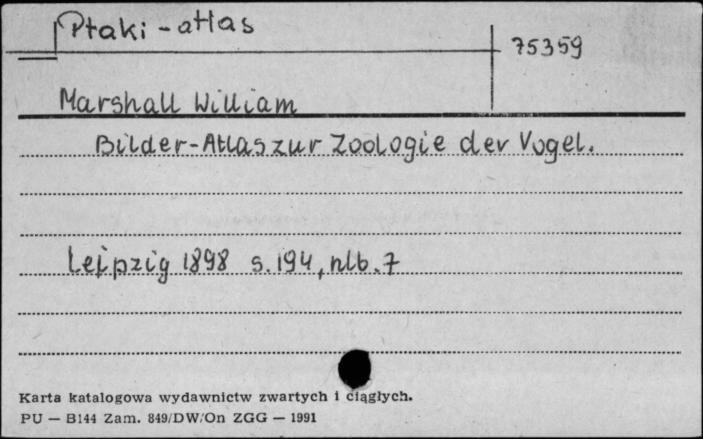 Ptaki - atlas
75359
Marshall William
Bilder-Atlas zur Zoologie der Vogel.
Leipzig 1898 s. 194, nlb. 7
Karta katalogowa wydawnictw zwartych i ciągłych.
PU — B144 Zam. 849/DW/On ZGG — 1991